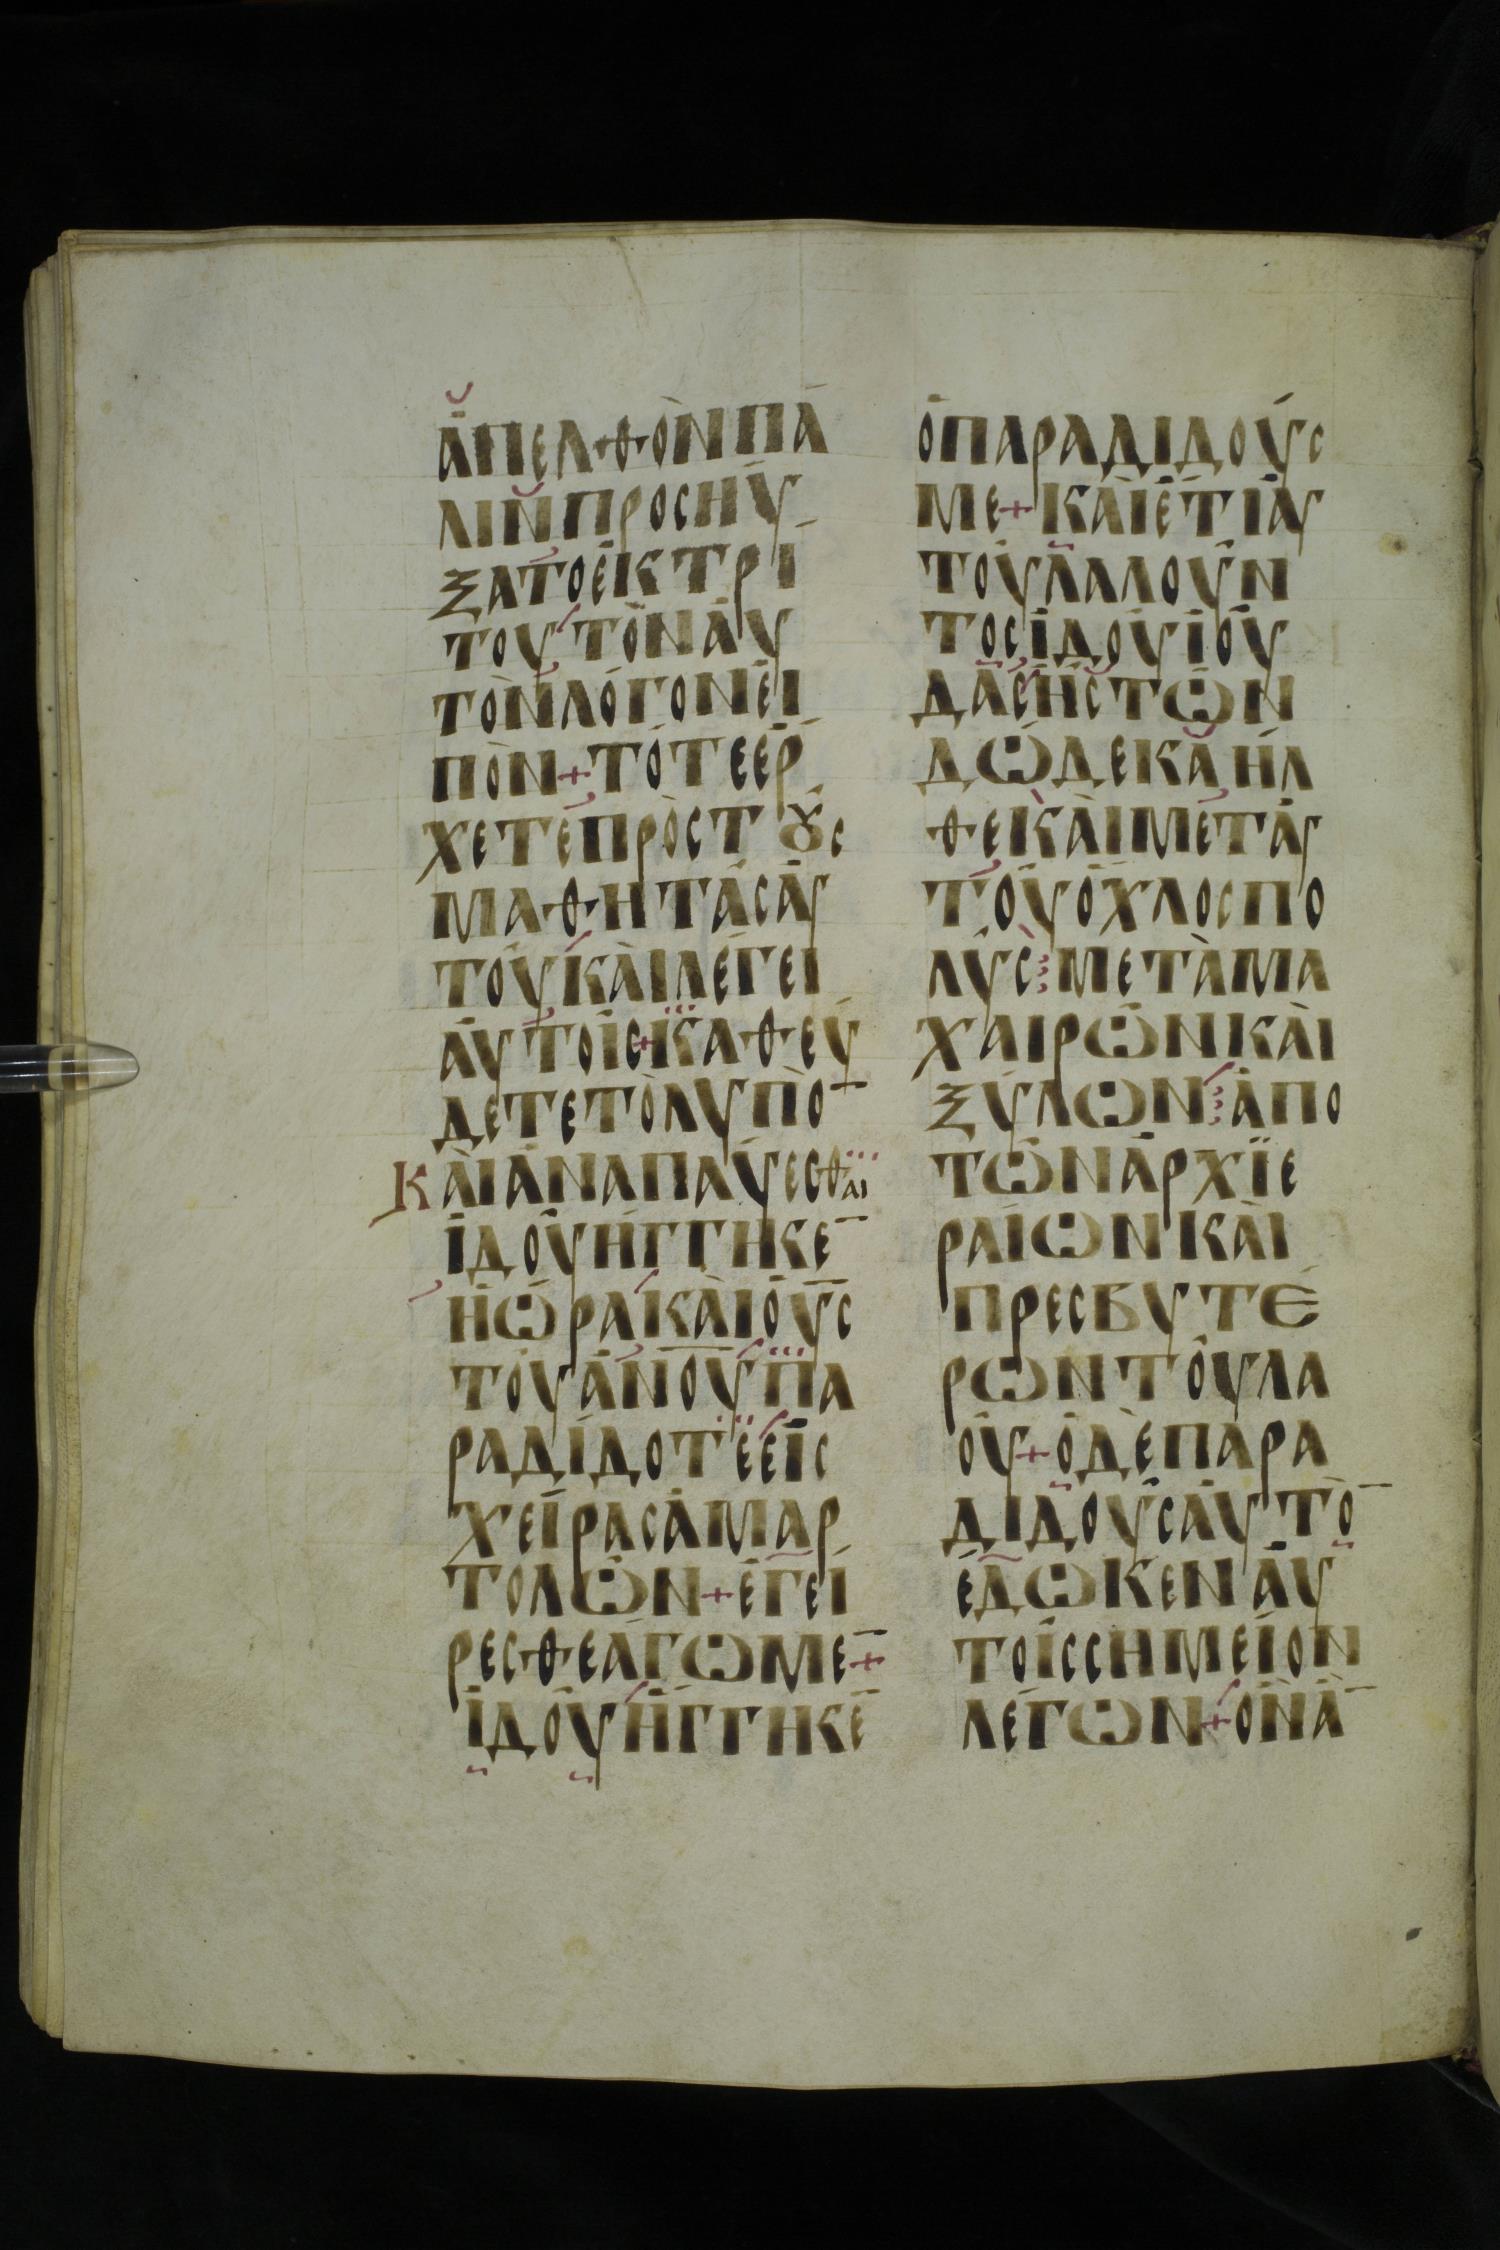 ἀπελθὸν πά
λιν προσηύ
ξατο ἐκ τρί
του τὸν αὐ
τὸν λόγον εἰ
πὸν + τότε ἔρ
χετε πρὸς τȣς
μαθητὰς αὐ
τοῦ καὶ λέγει
αὐτοῖς + καθεύ
δετε τὸ λυπὸ̅
Καὶ ἀναπαύεσθαι
ἰδοὺ ἤγγηκε̅
ἡ ὥρα καὶ ὁ υ̅ς̅
τοῦ α̅ν̅ο̅υ̅ πα
ραδίδοτε εἰς
χεῖρας ἁμαρ
τολῶν + ἐγεί
ρεσθε ἄγωμε̅ +
ἰδοὺ ἤγγηκε̅
ὁ παραδιδούς
με + καὶ ἔτι αὐ
τοῦ λαλοῦν
τος ἰδοὺ ἰού
δας ἧς τῶν
δώδεκα ἦλ
θε καὶ μετ' αὐ
τοῦ ὄχλος πο
λύς ⁝ μετὰ μα
χαιρῶν καὶ
ξύλων ⁝ ἀπο
τῶν ἀρχϊε
ραίων καὶ
πρεσβυτέ
ρων τοῦ λα
οῦ + ὁ δὲ παρα
διδοῦς αὐτὸ̅
ἔδωκεν αὐ
τοῖς σημεῖον
λέγων + ὃν ἂ̅